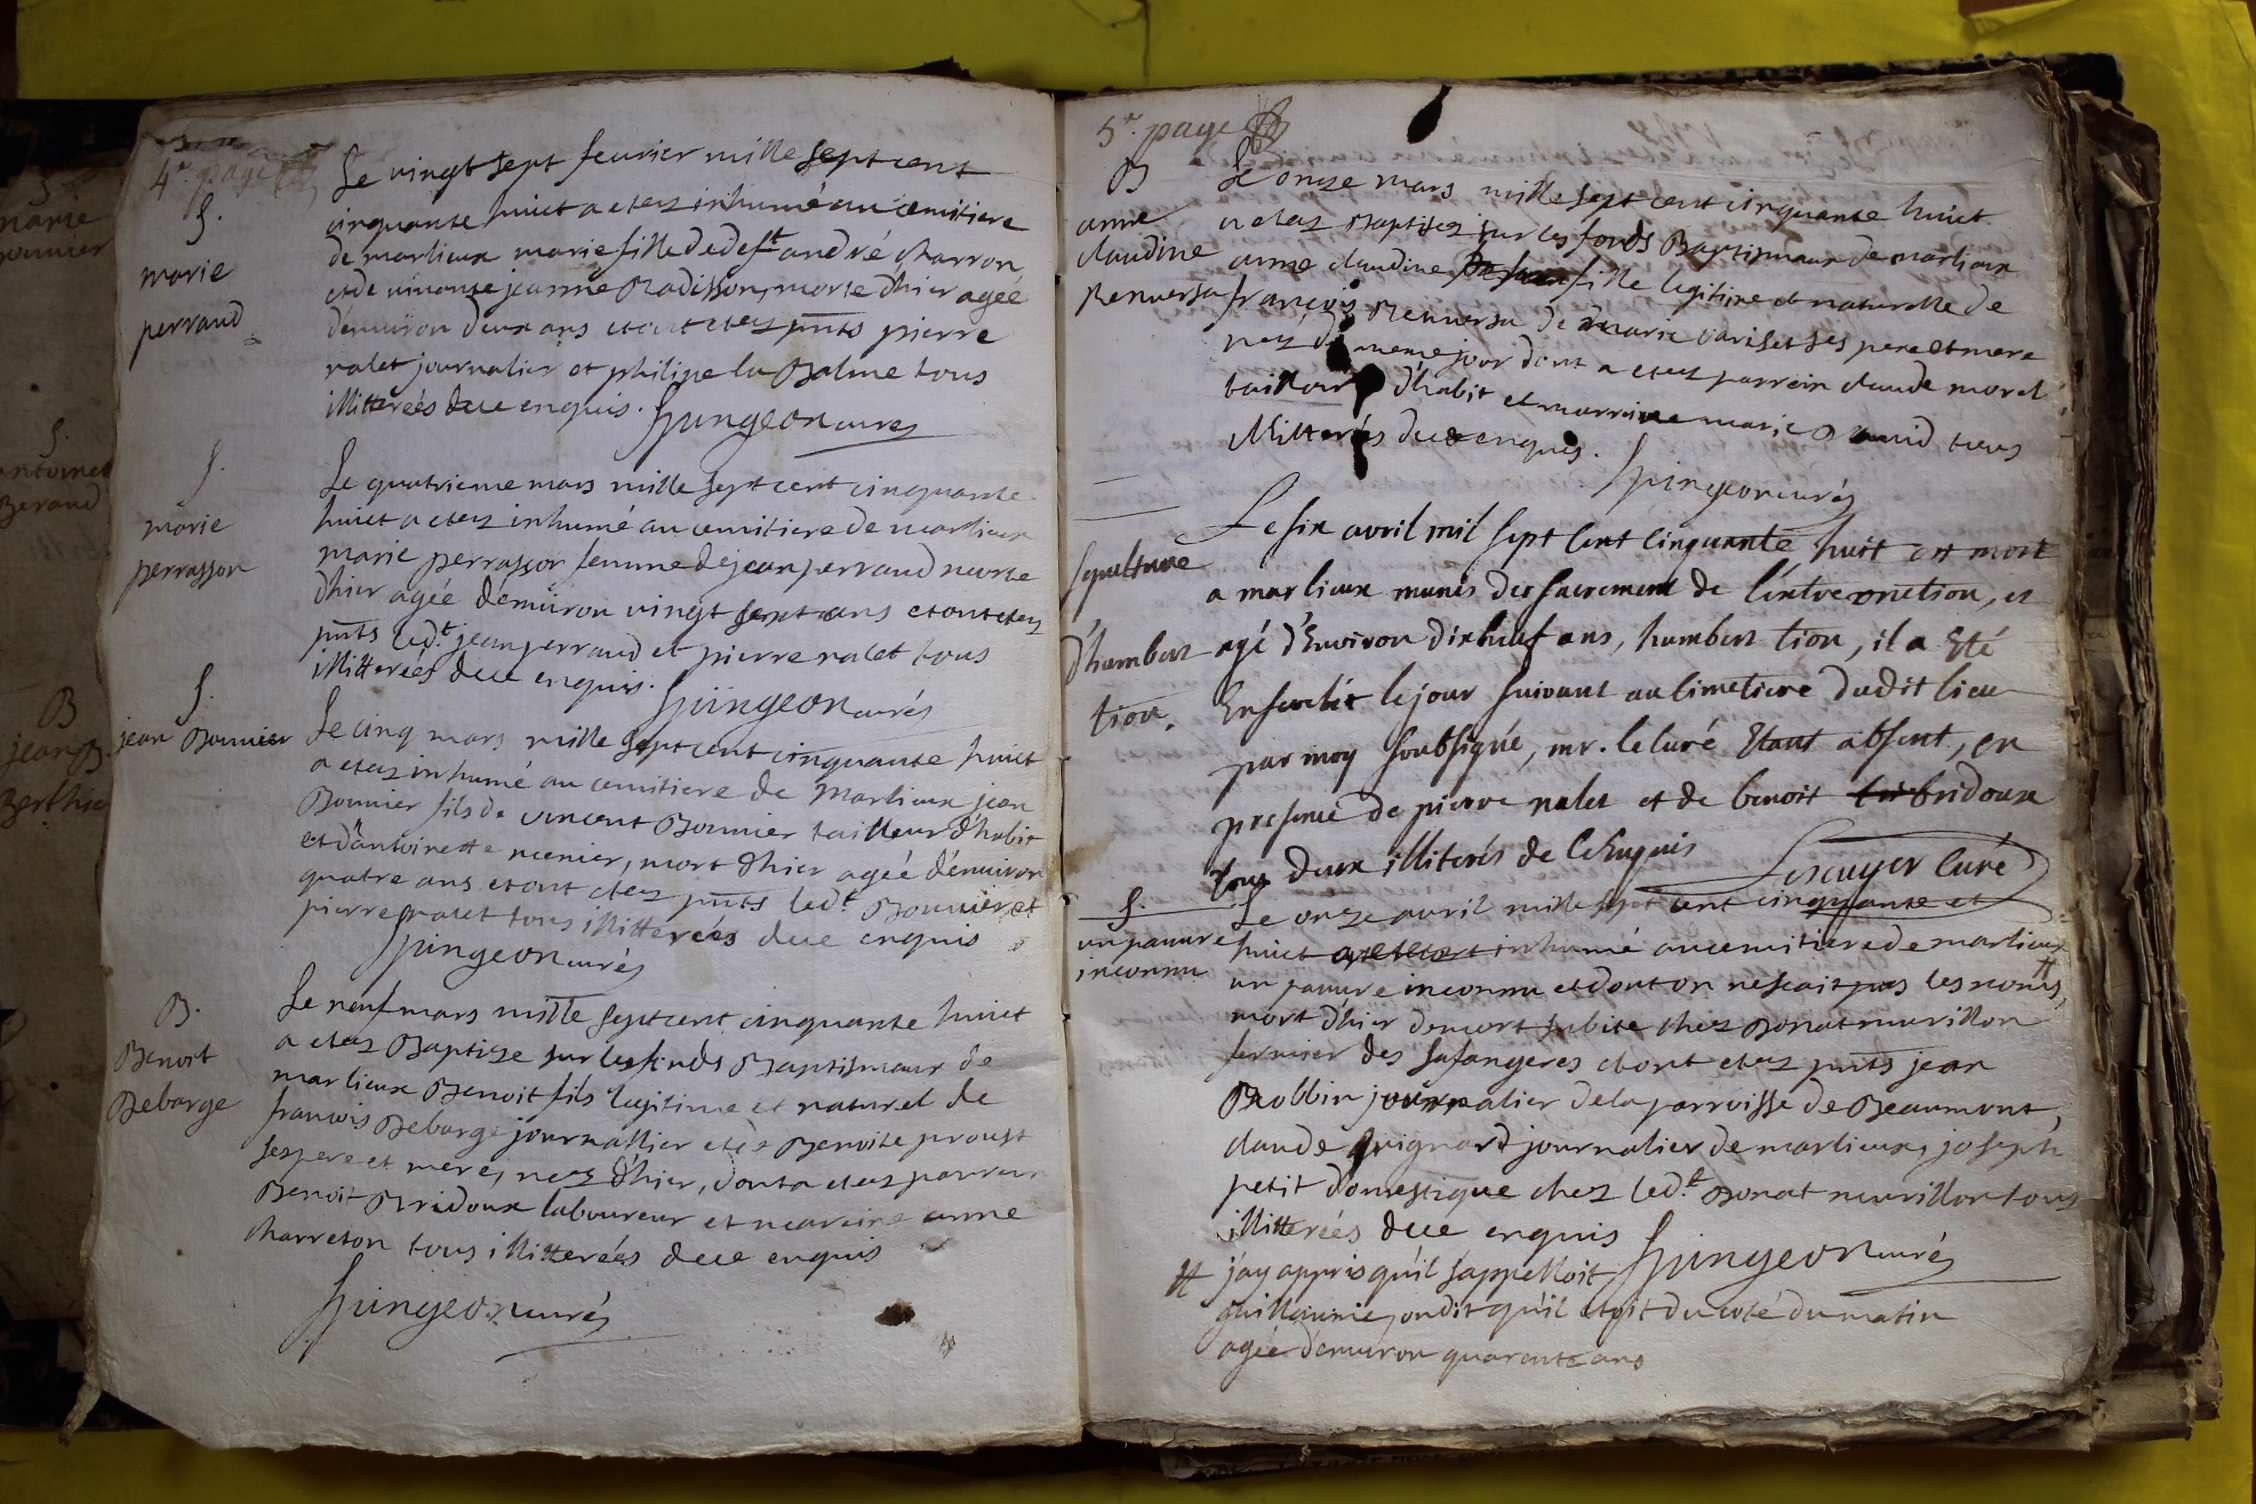 4e. page
S.
marie
perraud
Le vingt sept feurier mille sept cent
cinquante huict a etez inhumé au cemitiere
de marlieux marie fille de deft andré charron
et de viuante jeanne Badisson, morte d'hier ageé
d'enuiron deux ans et ont etez pnts pierre
ralet journalier et philipe la Balme tous
illitterées de ce enquis. Spingeon curez
S.
marie
perrasson
Le quatrieme mars mille sept cent cinquante
huict a etez inhumé au cemitiere de marlieux
marie perrasson femme de jean perraud morte
d'hier agée d'enuiron vingt sept ans et ont etez
pnts led.t jean perraud et pierre ralet tous
illitterées de ce enquis. Spingeon curéz
S.
jean Bonnier
Le cinq mars mille sept cent cinquante huict
a etez inhumé au cemitiere de Marlieux jean
Bonnier fils de vincent Bonnier tailleur d'habit
et d'antoinette meunier, mort d'hier ageé d'enuiron
quatre ans et ont etez pnts led.t Bonnier et
pierre ralet tous illitterées de ce enquis
Spingeon curéz
B.
Benoit
Debarge
Le neuf mars mille sept cent cinquante huict
a etez Baptize sur les fonds Baptismaux de
marlieux Benoit fils legitime et naturel de
francois Debarge journallier et de Benoite proust
ses pere et mere, nez d'hier, dont a etez parrein
Benoit Bridoux laboureur et mareine anne
charreton tous illitterées de ce enquis
Spingeon curéz
5e. page
B
anne
claudine
Renversa
Le onze mars mille sept cent cinquante huict
a etez Baptisez sur les fonds Baptismaux de marlieux
anne claudine fille legitime et naturelle de
françois Renversa de marie cariset ses pere et mere
nez de meme jour dont a etez parrein claude morel
tailleur d'habit et marreine marie tous
illitterées de ce enquis.
Spingeon curéz
Sepulture
d'humbert
tion.
Le six avril mil sept cent cinquante huit est mort
a marlieux munis des sacrement de l'extreonction, et
agé d'Environ dixneuf ans, humbert tion, il a Eté
Enseveli le jour suivant au cimetiere dudit lieu
par moy soubsigné, mr. le curé Etant absent, en
presence de pierre ralet et de benoit bridoux
tous deux illiterés de ce Enquis Lescuyer Curé
S.
un pauure
inconnu
Le onze avril mille sept cent cinquante et
huict a etez inhumé au cemitiere de marlieux
un pauure inconnu et dont on ne scait pas les noms #
mort d'hier de mort subite chez Bonat murillon
fermier des safangeres et ont etez pnts jean
Robbin journalier de la parroisse de Beaumont,
claude guignard journalier de marlieux, joseph
petit domestique chez led.t Bonat murillon tous
illitterées de ce enquis Spingeon curéz
# j'ay appris qu'il s'appelloit
guillaume, on dit qu'il etoit du coté du matin
agée d'enuiron quarente ans